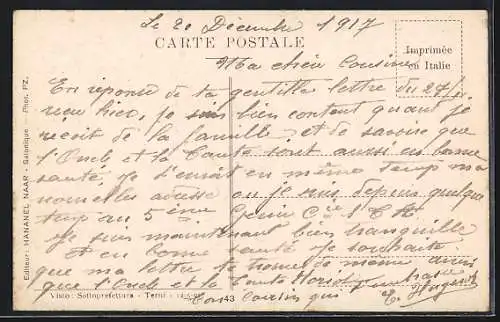 Le 20 Décembre 1917
CARTE POSTALE
Imprimée
en Italie
Ma chère Cousine
En réponse de ta gentille lettre du 27/11
reçu hier, je suis bien content quant je
reçoit de la famille et de savoire que
l'Oncle et la Tante sont aussi en bonne
santé, Je t'envoit en même temp ma
nouvelles adresse ou je suis depuis quelque
temp au 5ème Génie Cie
Je suis maintenant bien tranquille
et en bonne santé Je souhaite
que ma lettre te trouve de même ainsi
que l'Oncle et la Tante
Ton Cousin qui
E.
Visto: Sottoprefettura - Terni
43
Editeur: HANANEL NAAR - Salonique - Phot. PZ.